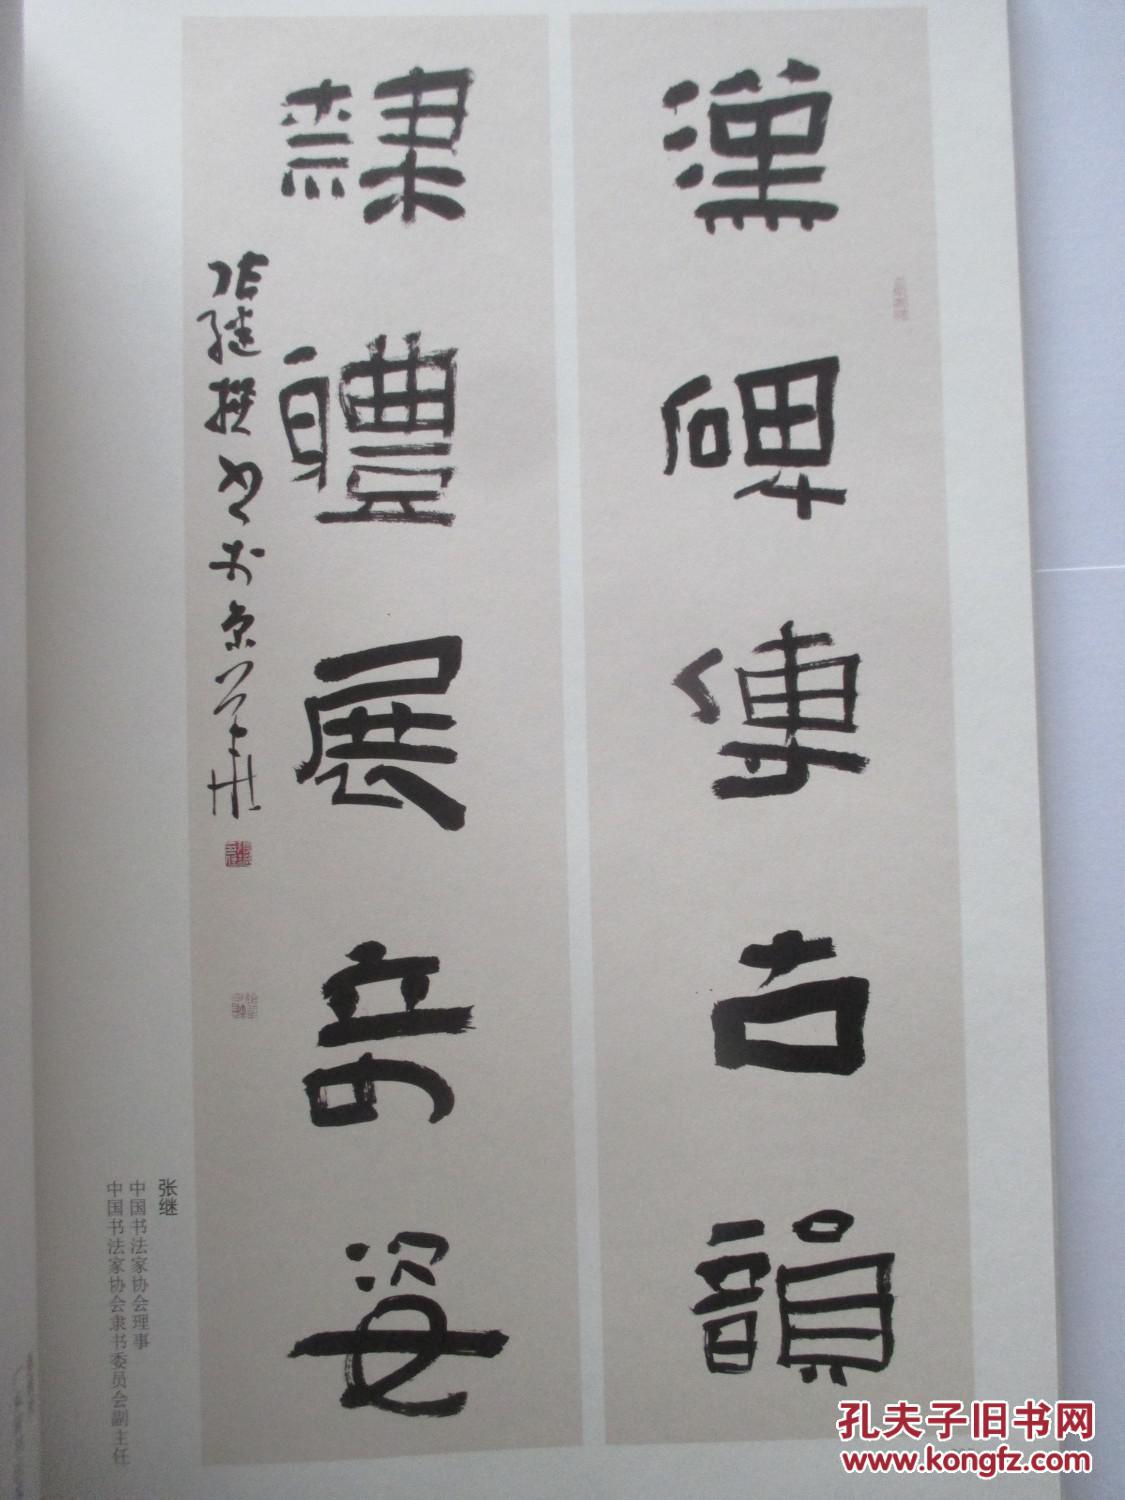 漢碑傳古韻
隸體展奇姿
张继
中国书法家协会理事
中国书法家协会隶书委员会副主任
孔夫子旧书网
www.kongfz.com